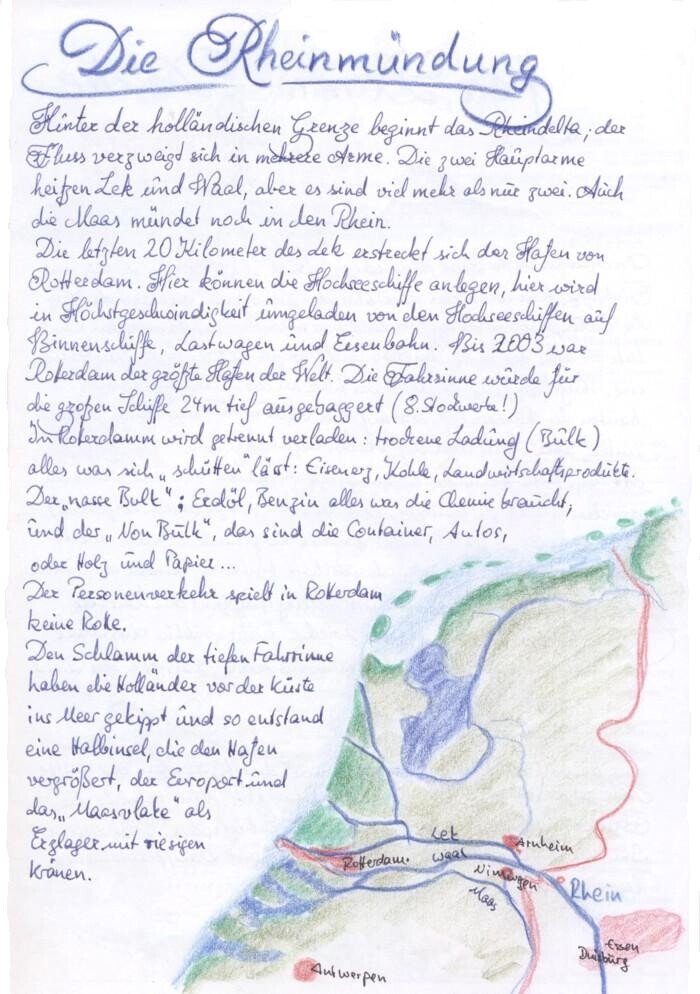 Die Rheinmündung
Hinter der holländischen Grenze beginnt das Rheindelta; der
Fluss verzweigt sich in mehrere Arme. Die zwei Hauptarme
heißen Lek und Waal, aber es sind viel mehr als nur zwei. Auch
die Maas mündet noch in den Rhein.
Die letzten 20 Kilometer des Lek erstreckt sich der Hafen von
Rotterdam. Hier können die Hochseeschiffe anlegen, hier wird
in Höchstgeschwindigkeit umgeladen von den Hochseeschiffen auf
Binnenschiffe, Lastwagen und Eisenbahn. Bis 2003 war
Roterdam der größte Hafen der Welt. Die Fahrrinne wurde für
die großen Schiffe 24m tief ausgebaggert (8. Stockwerke!)
In Roterdamm wird getrennt verladen: trockene Ladung (Bulk)
alles was sich „schütten" lässt: Eisenerz, Kohle, Landwirtschaftsprodukte.
Der „nasse Bulk"; Erdöl, Benzin alles was die Chemie braucht,
und der „Non Bulk", das sind die Container, Autos,
oder Holz und Papier...
Der Personenverkehr spielt in Roterdam
keine Rolle.
Den Schlamm der tiefen Fahrrinne
haben die Holländer vor der Küste
ins Meer gekippt und so entstand
eine Halbinsel, die den Hafen
vergrößert, der Europort und
das „Maasvlake" als
Erzlager mit riesigen
Kränen.
Lek
Arnheim
Rotterdam
Waal
Nimwegen
Maas
Rhein
Essen
Duisburg
Antwerpen